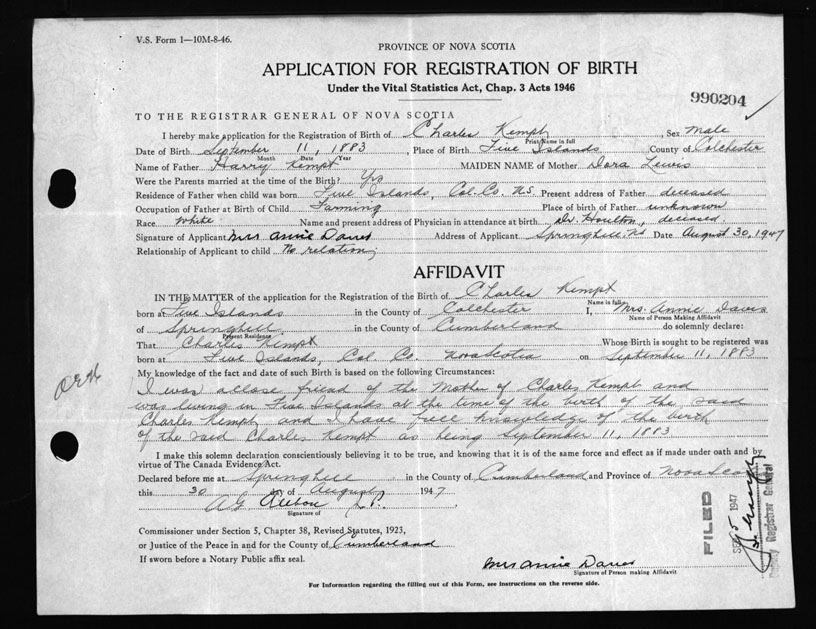 V.S. Form 1—10M-8-46.
PROVINCE OF NOVA SCOTIA
APPLICATION FOR REGISTRATION OF BIRTH
Under the Vital Statistics Act, Chap. 3 Acts 1946
990204
TO THE REGISTRAR GENERAL OF NOVA SCOTIA
I hereby make application for the Registration of Birth of Charles Kempt, Sex Male
Print Name in full
Date of Birth September 11, 1883, Place of Birth Five Islands County of Colchester
Month Date Year
Name of Father Harry Kempt MAIDEN NAME of Mother Dora Lewis
Were the Parents married at the time of the Birth? Yes
Residence of Father when child was born Five Islands, Col. Co. N.S. Present address of Father deceased
Occupation of Father at Birth of Child Farming Place of birth of Father unknown
Race White Name and present address of Physician in attendance at birth Dr. Houlton, deceased
Signature of Applicant Mrs Annie Davis Address of Applicant Springhill, NS Date August 30, 1947
Relationship of Applicant to child No relation
AFFIDAVIT
IN THE MATTER of the application for the Registration of the Birth of Charles Kempt
Name in full
born at Five Islands in the County of Colchester I, Mrs. Annie Davis
Name of Person Making Affidavit
of Springhill in the County of Cumberland do solemnly declare:
Present Residence
That Charles Kempt Whose Birth is sought to be registered was
born at Five Islands, Col. Co. Nova Scotia on September 11, 1883
My knowledge of the fact and date of such Birth is based on the following Circumstances:
I was a close friend of the Mother of Charles Kempt and
was living in Five Islands at the time of the birth of the said
Charles Kempt and I have full knowledge of the birth
of the said Charles Kempt as being September 11, 1883
I make this solemn declaration conscientiously believing it to be true, and knowing that it is of the same force and effect as if made under oath and by
virtue of The Canada Evidence Act.
Declared before me at Springhill in the County of Cumberland and Province of Nova Sco
this 30 day of August 1947
A G
Signature of
Commissioner under Section 5, Chapter 38, Revised Statutes, 1923,
or Justice of the Peace in and for the County of Cumberland
If sworn before a Notary Public affix seal.
Mrs Annie Davis
Signature of Person making Affidavit
For Information regarding the filling out of this Form, see instructions on the reverse side.
FILED
SEP 5 1947
Deputy Registrar General